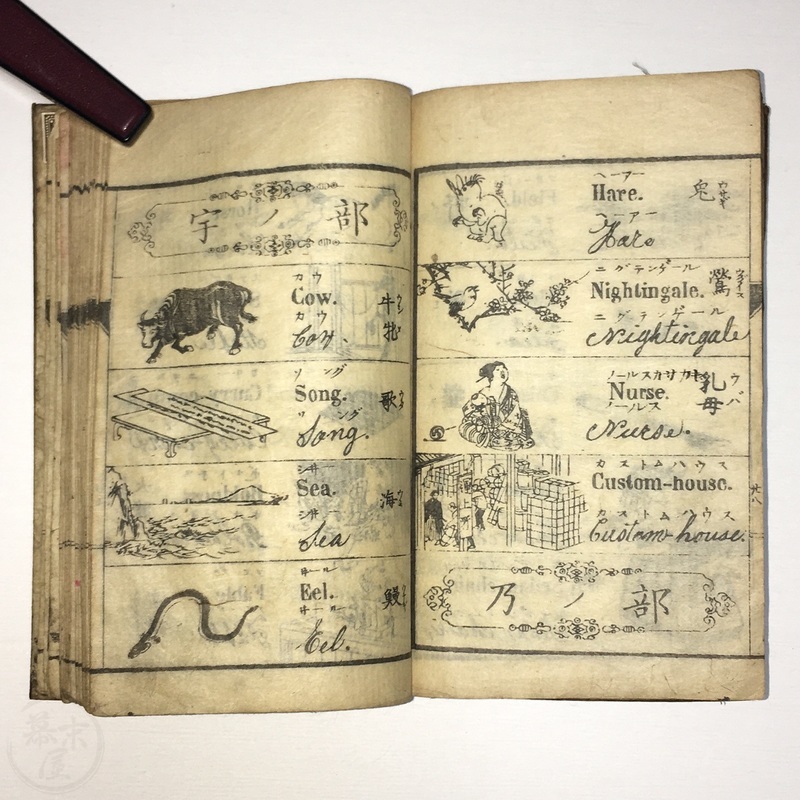 宇ノ部
カウ
Cow.
カウ
Cow.
牛牝
ソング
Song.
ソング
Song.
歌
シサー
Sea.
シサー
Sea
海
Eel.
Eel.
鰻
ヘーアー
Hare.
ヘーアー
Hare
兎
ウサギ
ニグテンゲール
Nightingale.
ニグテンゲール
Nightingale
鶯
ウグイス
Nurse.
ノールス
Nurse.
乳母
ウバ
カストムハウス
Custom-house.
カストムハウス
Custom-house.
廿八
乃ノ部
幕末屋